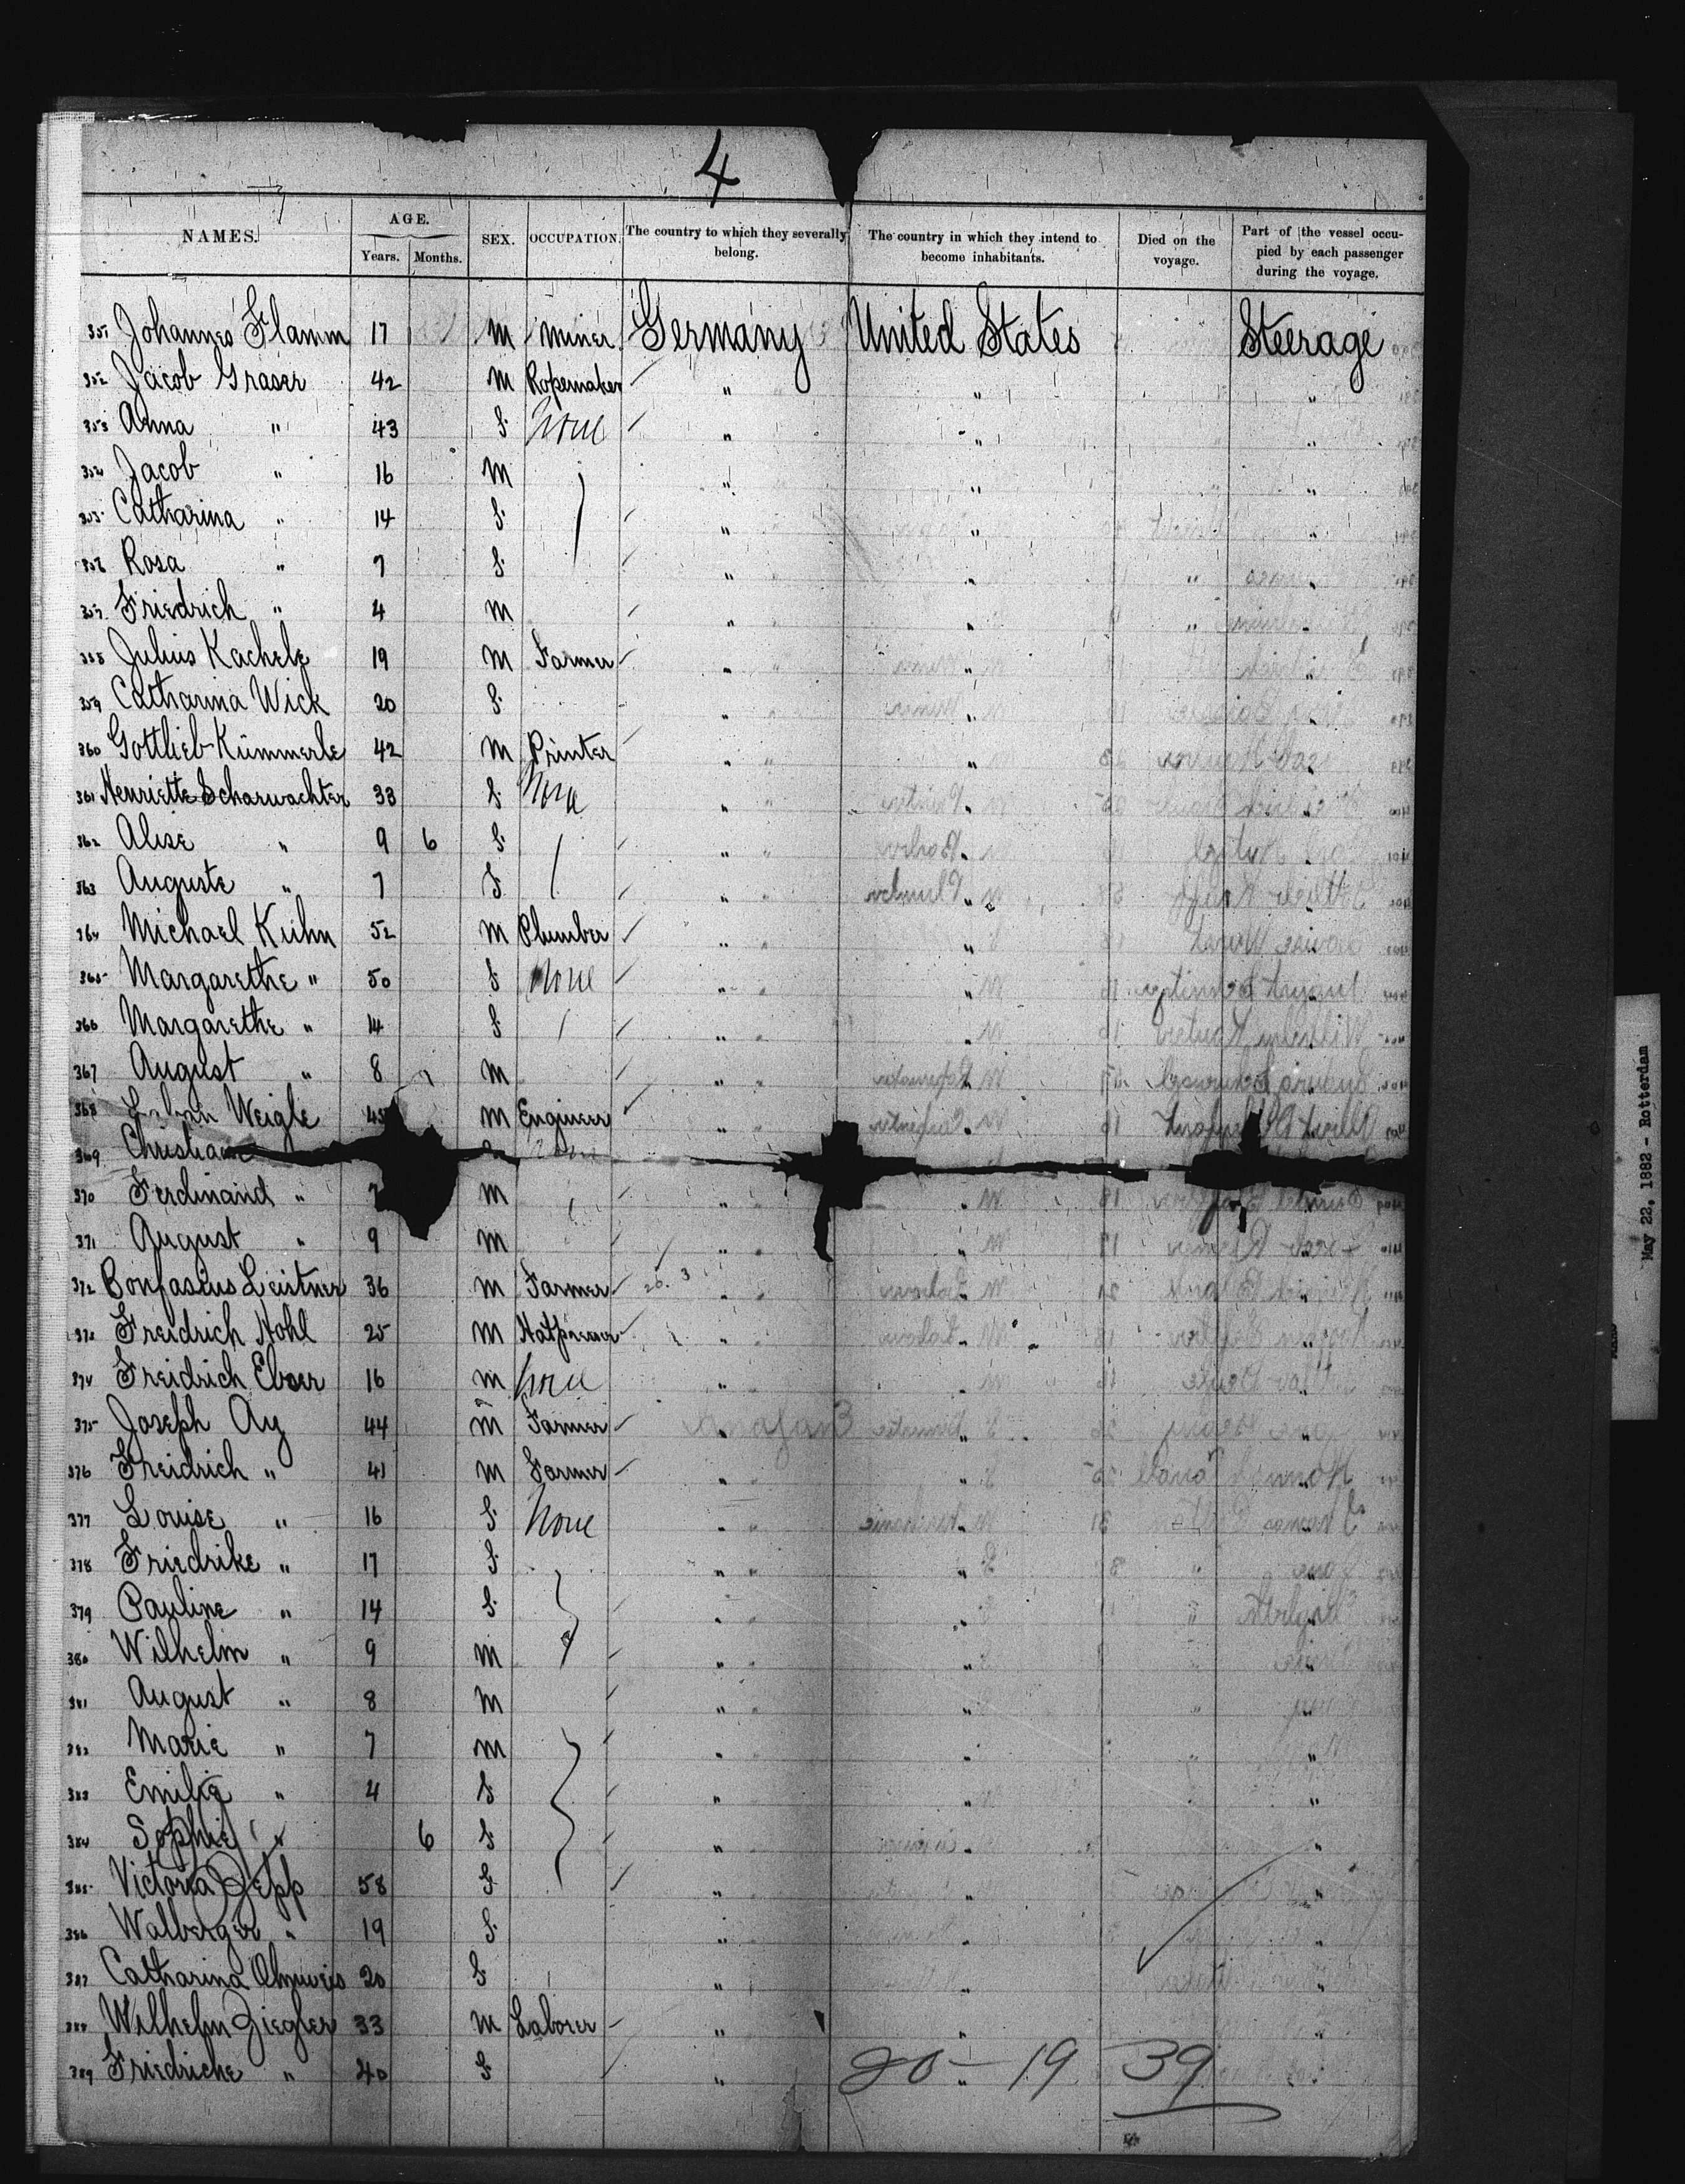 4
NAMES. AGE. Years. Months. SEX. OCCUPATION. The country to which they severally belong. The country in which they intend to become inhabitants. Died on the voyage. Part of the vessel occupied by each passenger during the voyage.
351 Johannes Flamm 17 M Miner Germany United States Steerage
352 Jacob Graser 42 M Ropemaker " " "
353 Anna " 43 F None " " "
354 Jacob " 16 M " " "
355 Catharina " 14 F " " "
356 Rosa " 7 F " " "
357 Friedrich " 4 M " " "
358 Julius Kachele 19 M Farmer " " "
359 Catharina Wick 20 F " " "
360 Gottlieb Kümmerle 42 M Printer " " "
361 Henriette Scharwachter 33 F None " " "
362 Alise " 9 6 F " " "
363 Auguste " 7 F " " "
364 Michael Kuhn 52 M Plumber " " "
365 Margarethe " 50 F None " " "
366 Margarethe " 14 F " " "
367 August " 8 M " " "
368 Weigle 45 M Engineer " " "
369 Christiane
370 Ferdinand " 7 M " "
371 August " 9 M " " "
372 Bonfasius Leistner 36 M Farmer 26. 3 " " "
373 Freidrich Hohl 25 M Hatpresser " " "
374 Freidrich Ebser 16 M None " " "
375 Joseph Ay 44 M Farmer " " "
376 Freidrich " 41 M Farmer " " "
377 Louise " 16 F None " " "
378 Friedrike " 17 F " " "
379 Pauline " 14 F " " "
380 Wilhelm " 9 M " " "
381 August " 8 M " " "
382 Marie " 7 M " " "
383 Emilie " 4 F " " "
384 Sophie " 6 F " " "
385 Victoria Zepp 58 F " " "
386 Walberger " 19 F " " "
387 Catharina 20 F " " "
388 Wilhelm Ziegler 33 M Laborer " " "
389 Friedriche " 40 F " " "
20 - 19 39
May 22, 1882 - Rotterdam